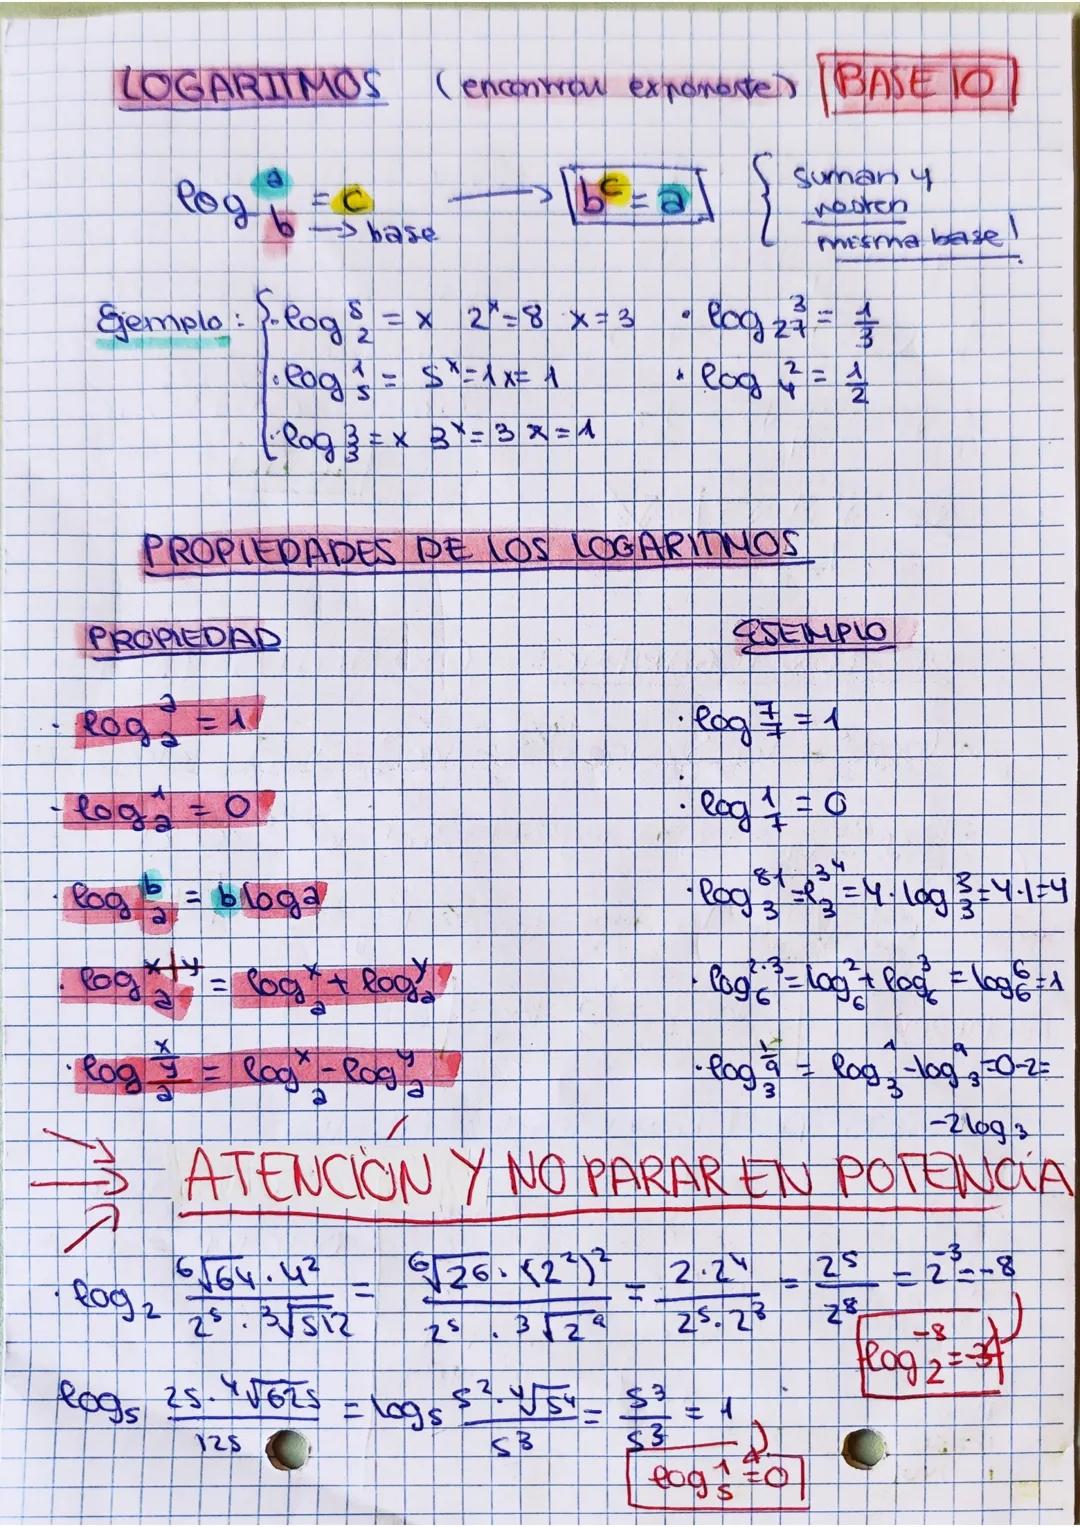 LOGARITMOS (encontrar exponente) BASE 10
log_b^a = c → b^c = a { suman y
→ base restan
misma base!
Ejemplo: { · log_2^8 = x 2^x = 8 x = 3 · log_27^3 = 1/3
· log_5^1 = 5^x = 1 x = 1 · log_4^2 = 1/2
· log_3^3 = x 3^x = 3 x = 1
PROPIEDADES DE LOS LOGARITMOS
PROPIEDAD EJEMPLO
· log_a^a = 1 · log_7^7 = 1
· log_a^1 = 0 · log_7^1 = 0
· log_a^b = b log a · log_3^81 = l_3^3^4 = 4 · log_3^3 = 4·1=4
· log_a^x+y = log_a^x + log_a^y · log_6^2·3 = log_6^2 + log_6^3 = log_6^6 = 1
· log_a^x/y = log_a^x - log_a^y · log_3^1/9 = log_3^1 - log_3^9 = 0-2=
-2log_3
ATENCIÓN Y NO PARAR EN POTENCIA
· log_2 (⁶√64 · 4²)/(2⁵ · ³√512) = (⁶√26 · (2²)²)/(2⁵ · 3√2⁹) = (2·2⁴)/(2⁵·2³) = 2⁵/2⁸ = 2^-3 = -8
log_2^-8 = -3
log_5 (25 · ⁴√625)/125 = log_5 (5² · ⁴√5⁴)/5³ = 5³/5³ = 1
log_5^1 = 0